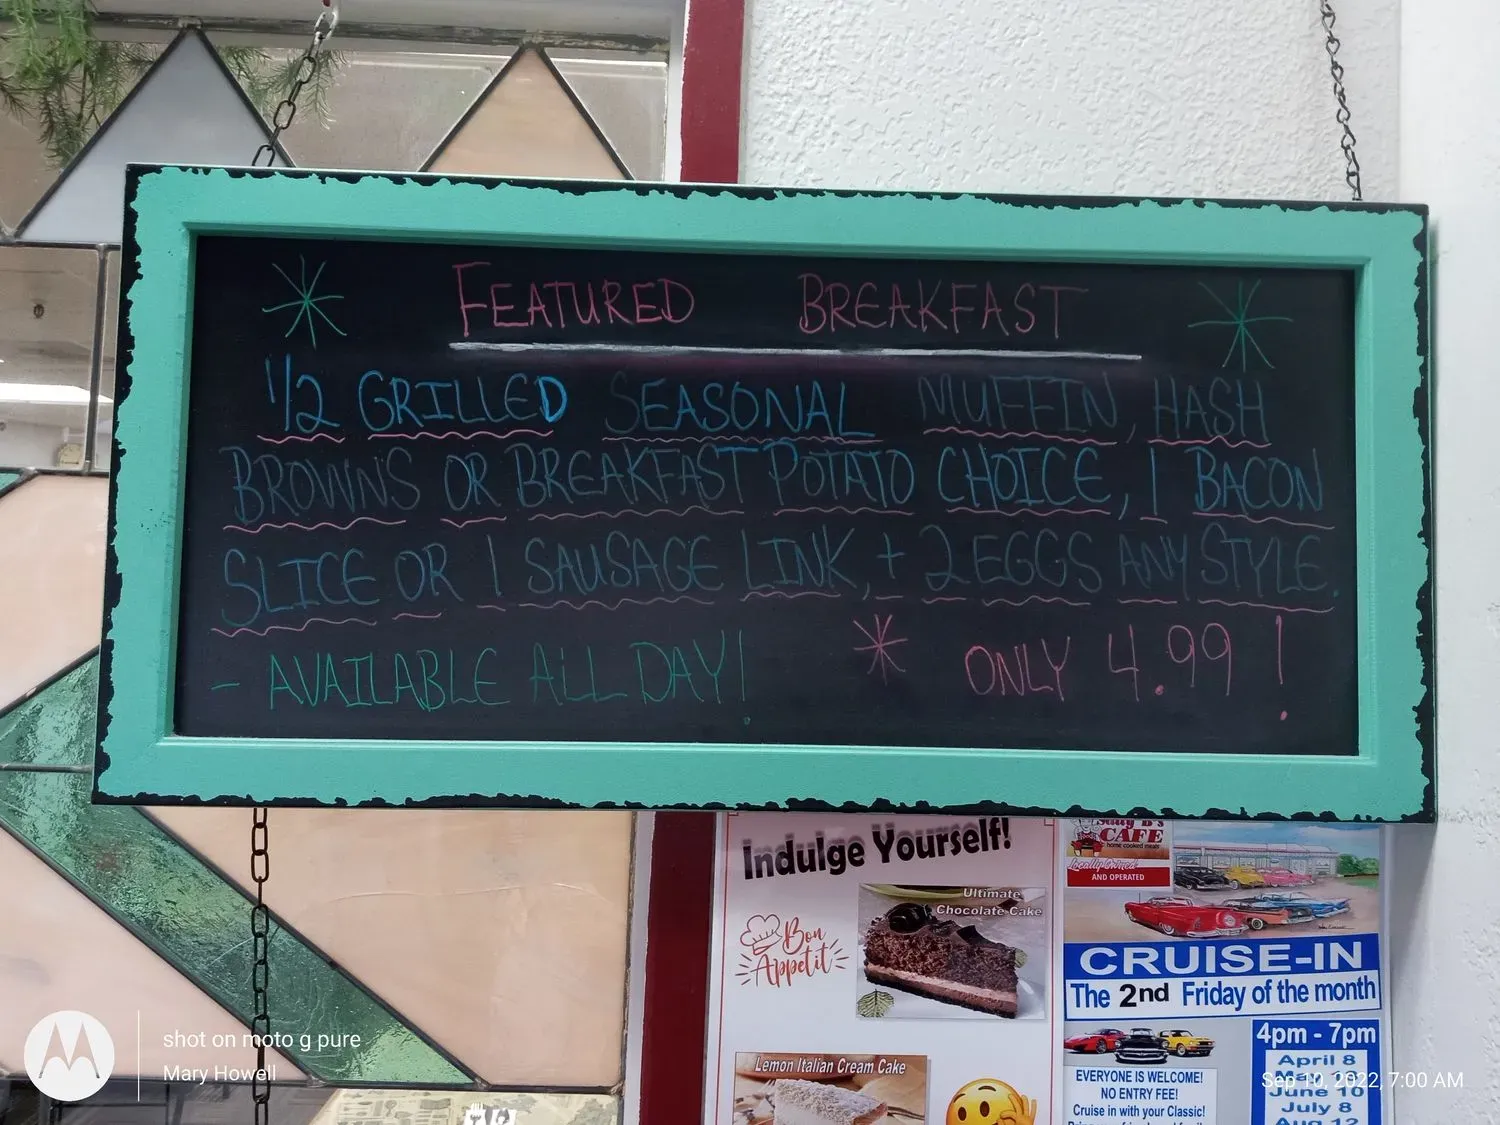 FEATURED BREAKFAST
1/2 GRILLED SEASONAL MUFFIN, HASH
BROWNS OR BREAKFAST POTATO CHOICE, 1 BACON
SLICE OR 1 SAUSAGE LINK, + 2 EGGS ANY STYLE.
- AVAILABLE ALL DAY! * ONLY 4.99!
Indulge Yourself!
Ultimate
Chocolate Cake
Bon
Appetit
Lemon Italian Cream Cake
B's
CAFE
home cooked meals
Locally Owned
AND OPERATED
CRUISE-IN
The 2nd Friday of the month
4pm - 7pm
April 8
June 10
July 8
Aug 12
EVERYONE IS WELCOME!
NO ENTRY FEE!
Cruise in with your Classic!
shot on moto g pure
Mary Howell
Sep 10, 2022, 7:00 AM